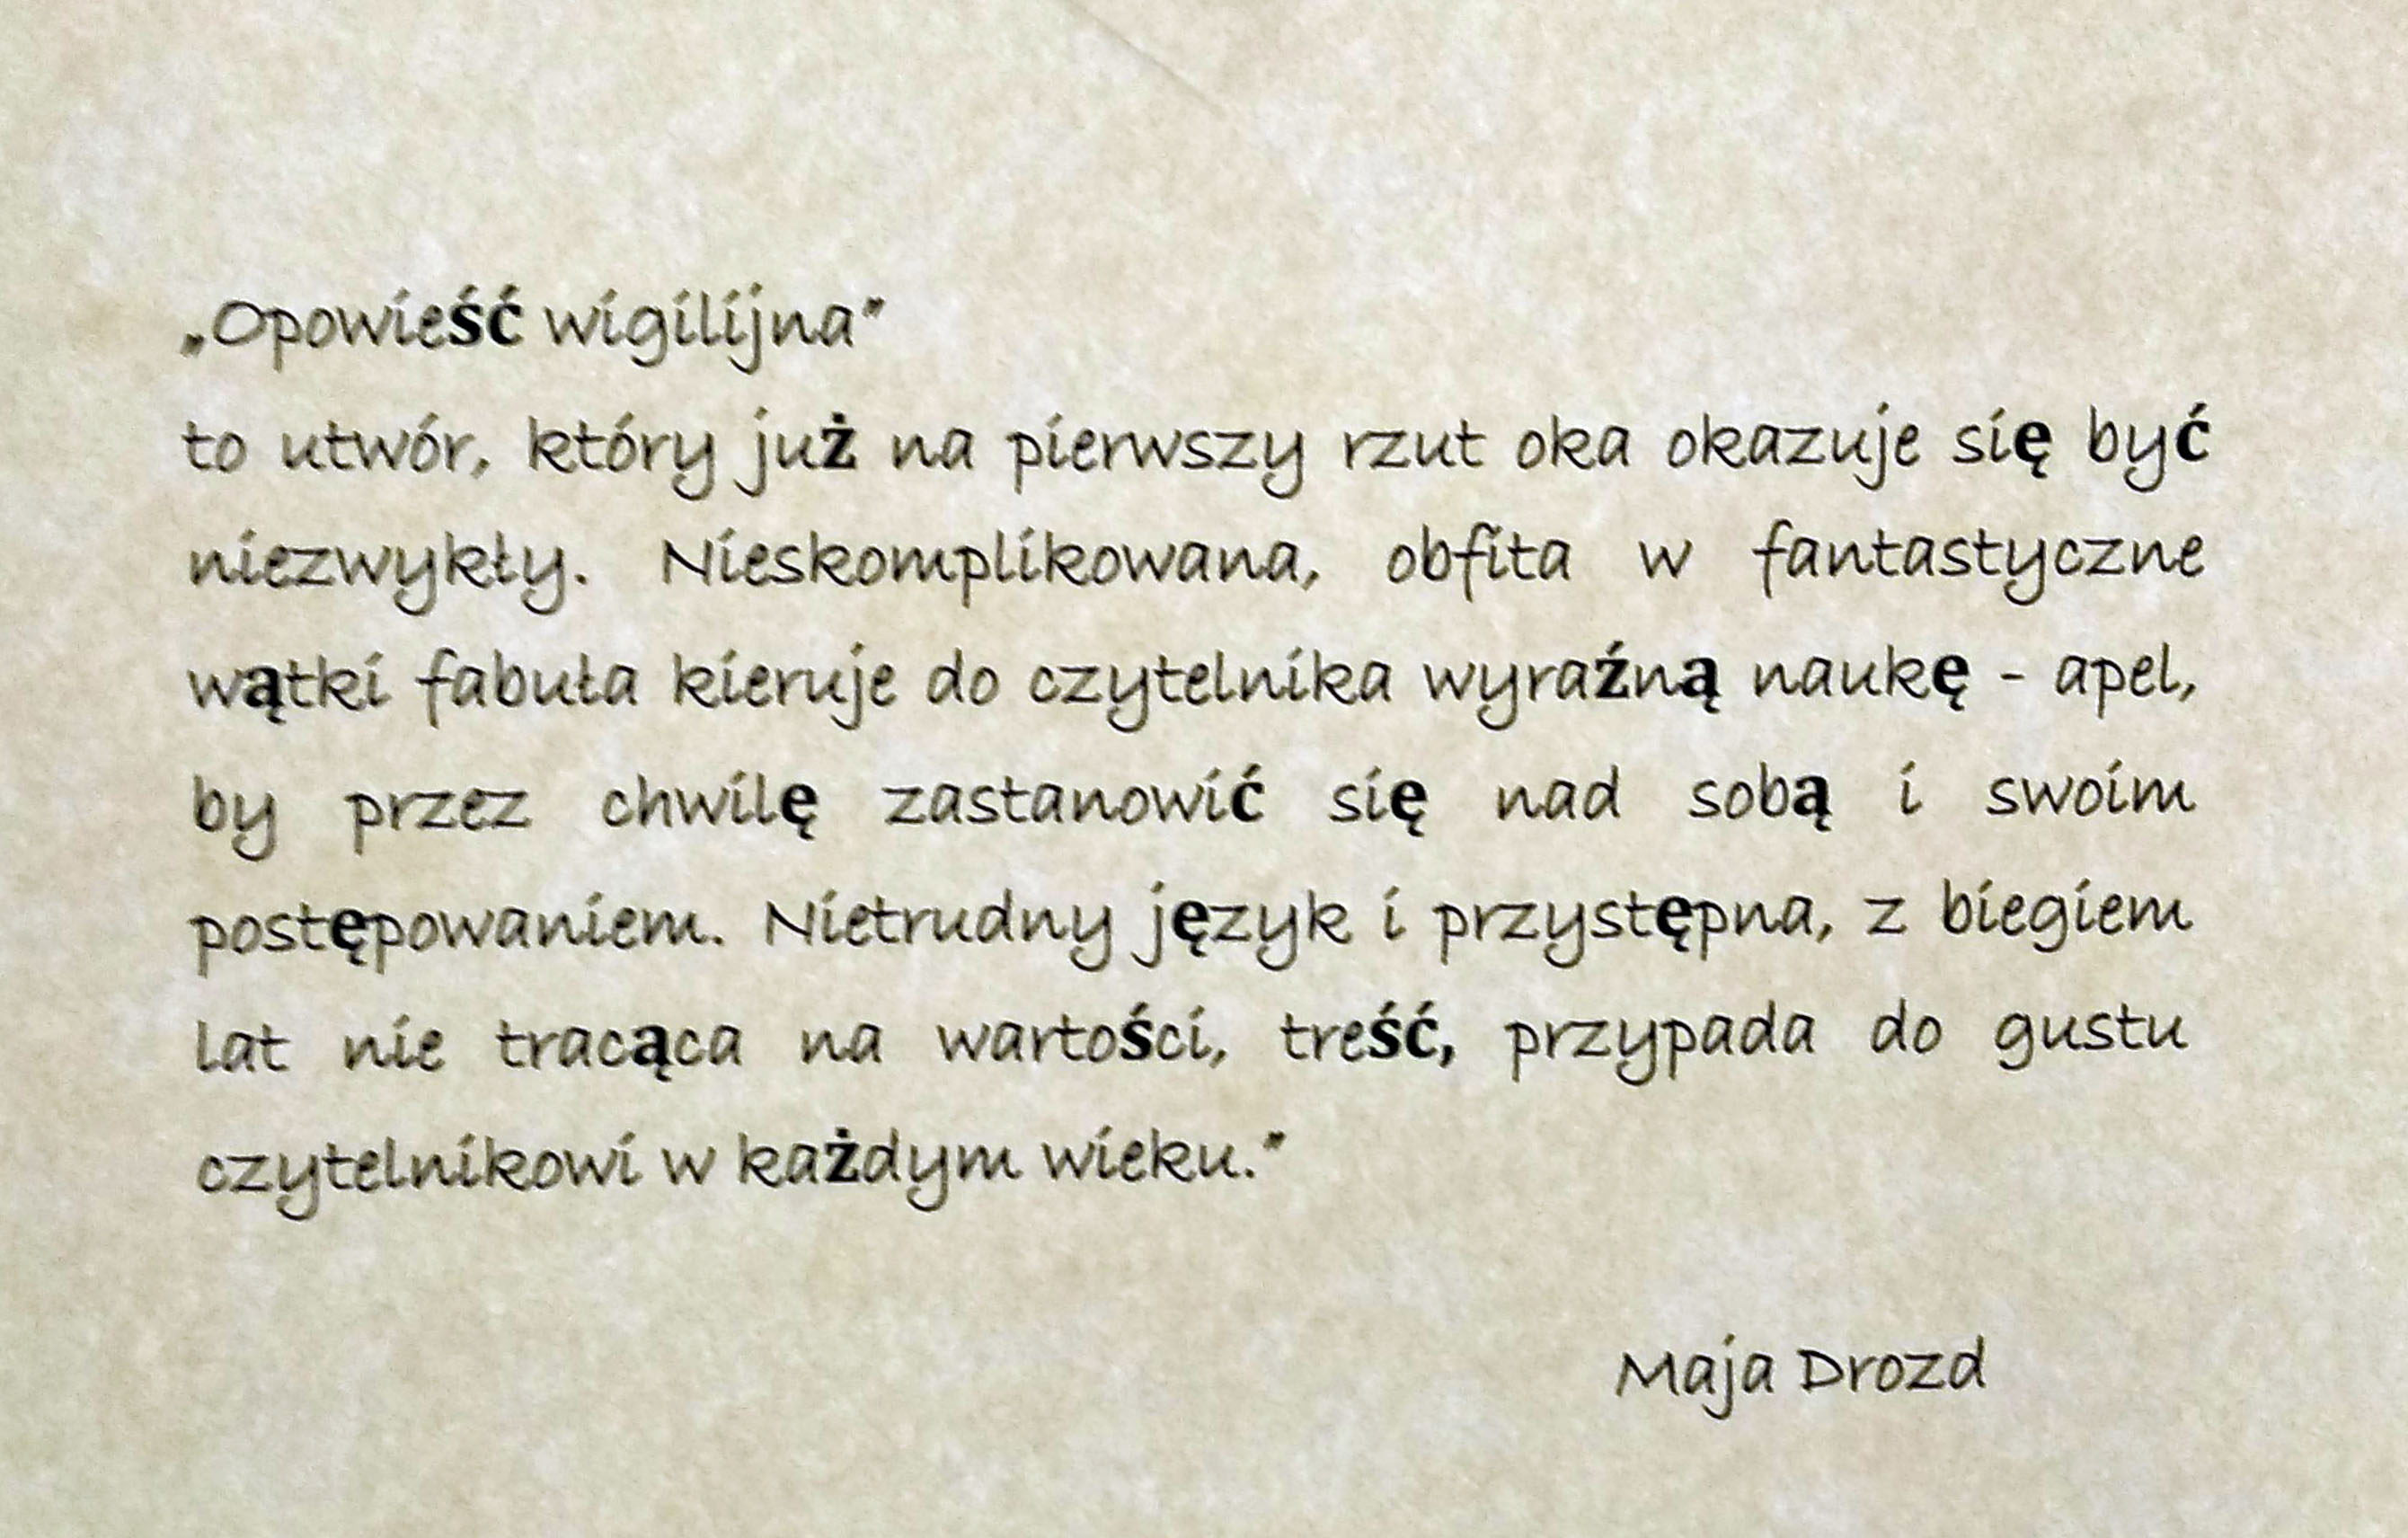 „Opowieść wigilijna”
to utwór, który już na pierwszy rzut oka okazuje się być
niezwykły. Nieskomplikowana, obfita w fantastyczne
wątki fabuła kieruje do czytelnika wyraźną naukę - apel,
by przez chwilę zastanowić się nad sobą i swoim
postępowaniem. Nietrudny język i przystępna, z biegiem
lat nie tracąca na wartości, treść, przypada do gustu
czytelnikowi w każdym wieku.”
Maja Drozd